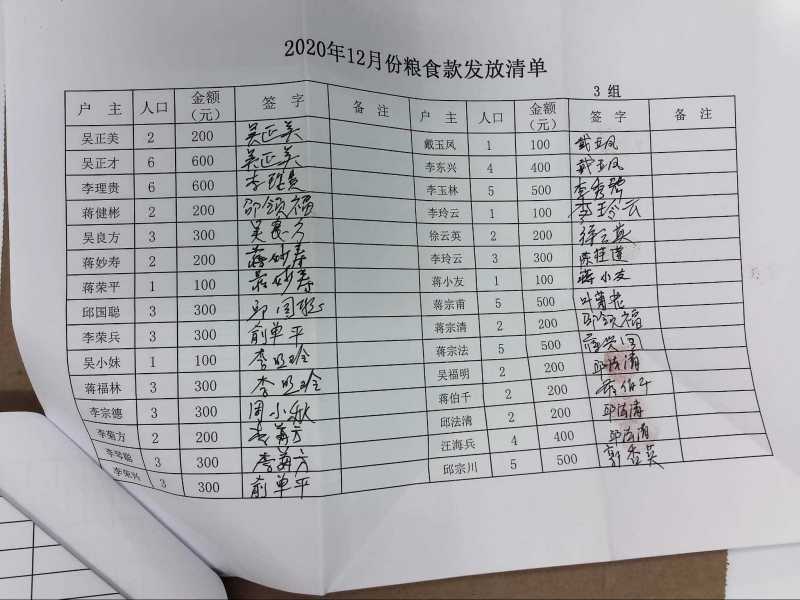 2020年12月份粮食款发放清单
3 组
户 主 人口 金额（元） 签 字 备 注 户 主 人口 金额（元） 签 字 备 注
吴正美 2 200 吴正美 戴玉凤 1 100 戴玉凤
吴正才 6 600 吴正美 李东兴 4 400 戴玉凤
李理贵 6 600 李理贵 李玉林 5 500
蒋健彬 2 200 邱领福 李玲云 1 100 李玲云
吴良方 3 300 吴良方 徐云英 2 200 徐云英
蒋妙寿 2 200 蒋妙寿 李玲云 3 300 陈桂莲
蒋荣平 1 100 蒋妙寿 蒋小友 1 100 蒋小友
邱国聪 3 300 邱国聪 蒋宗甫 5 500
李荣兵 3 300 俞单平 蒋宗清 2 200 邱领福
吴小妹 1 100 李明玲 蒋宗法 5 500
蒋福林 3 300 李明玲 吴福明 2 200 邱法清
李宗德 3 300 周小秋 蒋伯千 2 200 蒋伯千
李菊方 2 200 李菊方 邱法清 2 200 邱法清
李琴聪 3 300 李菊方 汪海兵 4 400 邱法清
李荣兴 3 300 俞单平 邱宗川 5 500 郭香英